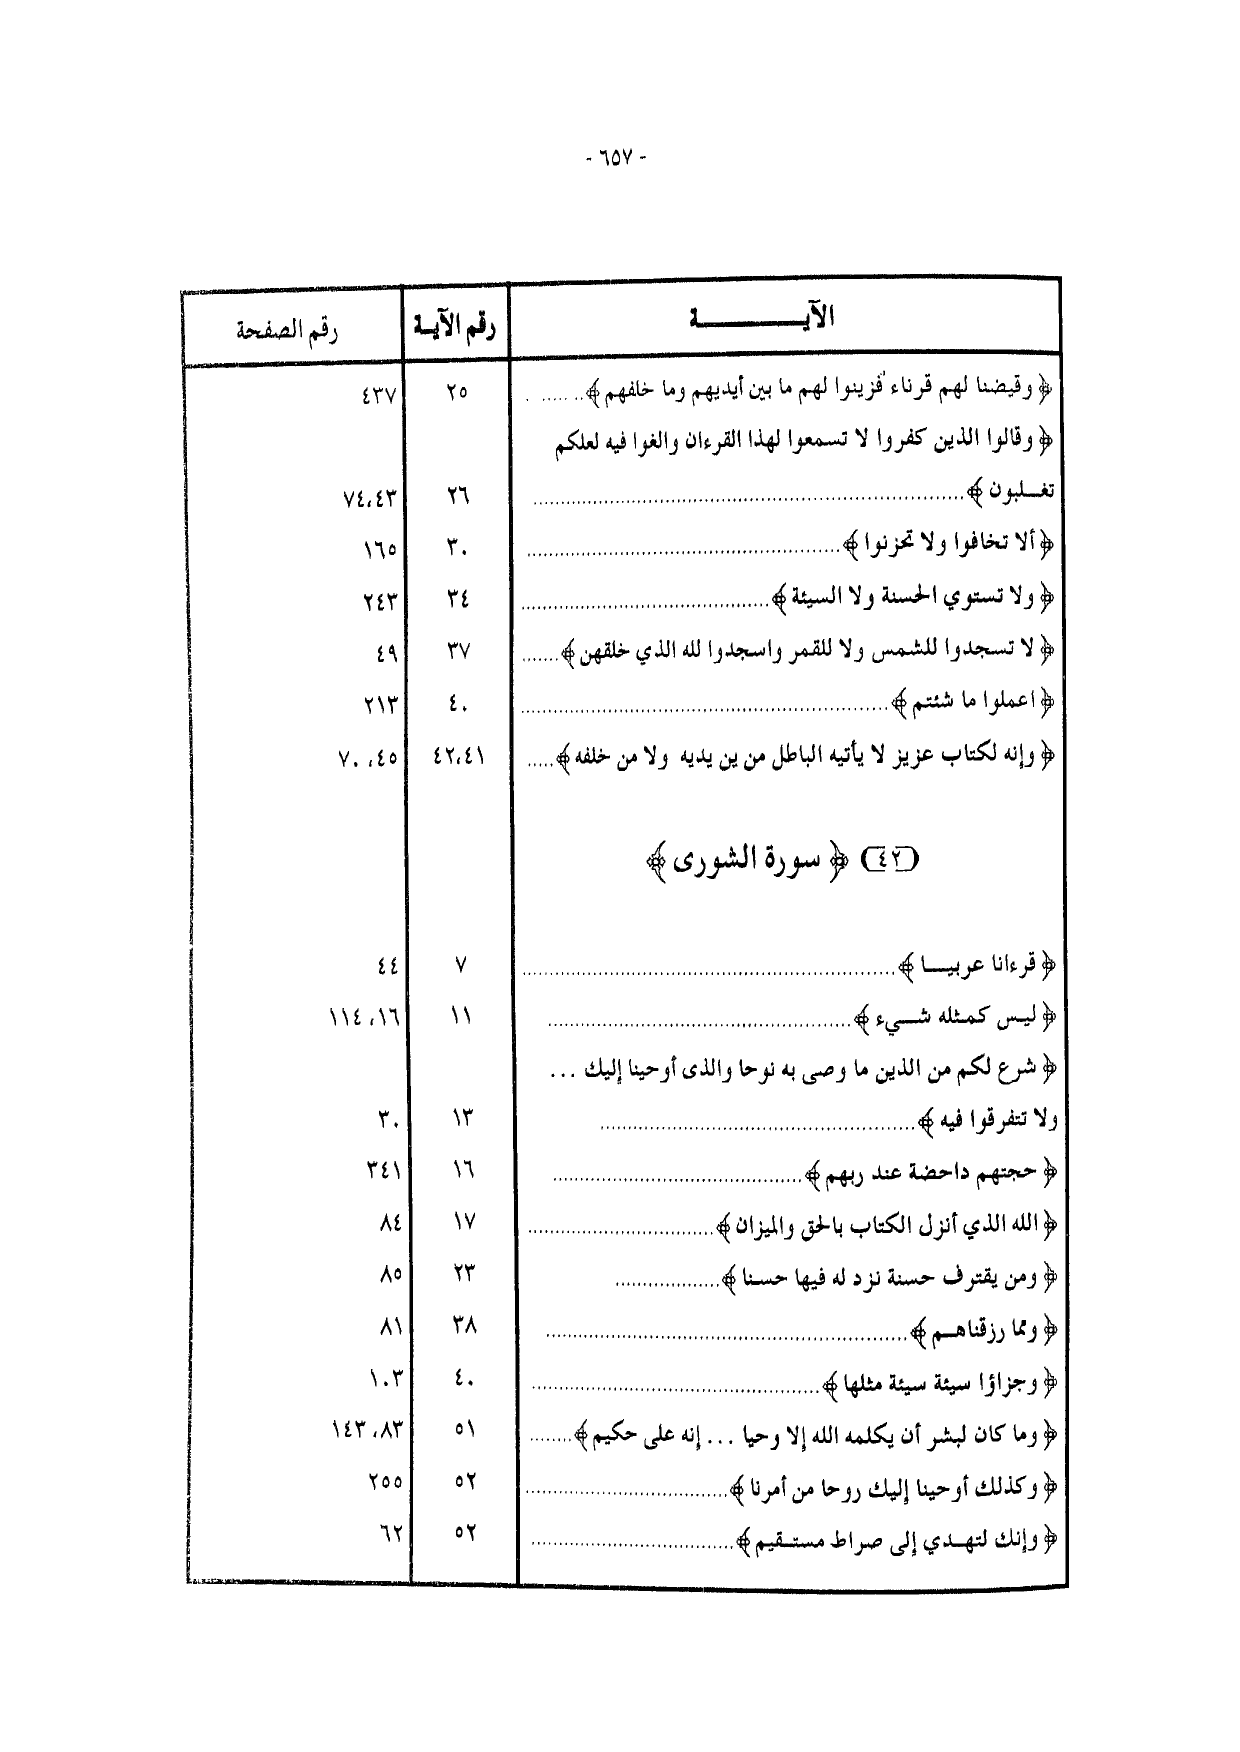 - ٦٥٧ -
الآيــــــــــة رقم الآيـة رقم الصفحة
﴿ وقيضنا لهم قرناء فزينوا لهم ما بين أيديهم وما خلفهم ﴾ ........ . ٢٥ ٤٣٧
﴿ وقالوا الذين كفروا لا تسمعوا لهذا القرءان والغوا فيه لعلكم
تغــلبون ﴾ ........................................ ٢٦ ٧٤،٤٣
﴿ ألا تخافوا ولا تحزنوا ﴾ ........................................ ٣٠ ١٦٥
﴿ ولا تستوي الحسنة ولا السيئة ﴾ ........................................ ٣٤ ٢٤٣
﴿ لا تسجدوا للشمس ولا للقمر واسجدوا لله الذي خلقهن ﴾ ....... ٣٧ ٤٩
﴿ اعملوا ما شئتم ﴾ ........................................ ٤٠ ٢١٣
﴿ وإنه لكتاب عزيز لا يأتيه الباطل من ين يديه ولا من خلفه ﴾ ..... ٤٢،٤١ ٧٠،٤٥
(٤٢) ﴿ سورة الشورى ﴾
﴿ قرءانا عربيــا ﴾ ........................................ ٧ ٤٤
﴿ ليس كمثله شــيء ﴾ ........................................ ١١ ١١٤،١٦
﴿ شرع لكم من الذين ما وصى به نوحا والذى أوحينا إليك ...
ولا تتفرقوا فيه ﴾ ........................................ ١٣ ٣٠
﴿ حجتهم داحضة عند ربهم ﴾ ........................................ ١٦ ٣٤١
﴿ الله الذي أنزل الكتاب بالحق والميزان ﴾ .............................. ١٧ ٨٤
﴿ ومن يقترف حسنة نزد له فيها حسنا ﴾ .................... ٢٣ ٨٥
﴿ ومما رزقناهــم ﴾ ........................................ ٣٨ ٨١
﴿ وجزاؤا سيئة سيئة مثلها ﴾ ........................................ ٤٠ ١٠٣
﴿ وما كان لبشر أن يكلمه الله إلا وحيا ... إنه على حكيم ﴾ ........ ٥١ ١٤٣،٨٣
﴿ وكذلك أوحينا إليك روحا من أمرنا ﴾ .............................. ٥٢ ٢٥٥
﴿ وإنك لتهــدي إلى صراط مستـقيم ﴾ .............................. ٥٢ ٦٢